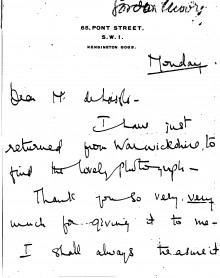 65, PONT STREET,
S.W.1.
KENSINGTON
Monday.
Dear M. de Laszlo -
I have just
returned from Warwickshire, to
find the lovely photograph -
Thank you so very, very
much for giving it to me -
I shall always treasure it